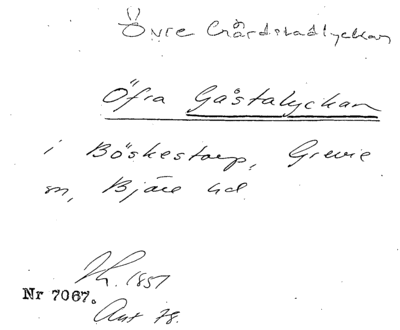 Övre Gårdstadlyckan
Öfra Gåstalyckan
i Böskestorp, Grevie
sn, Bjäre hd
1857
Nr 7067.
Ant 78.